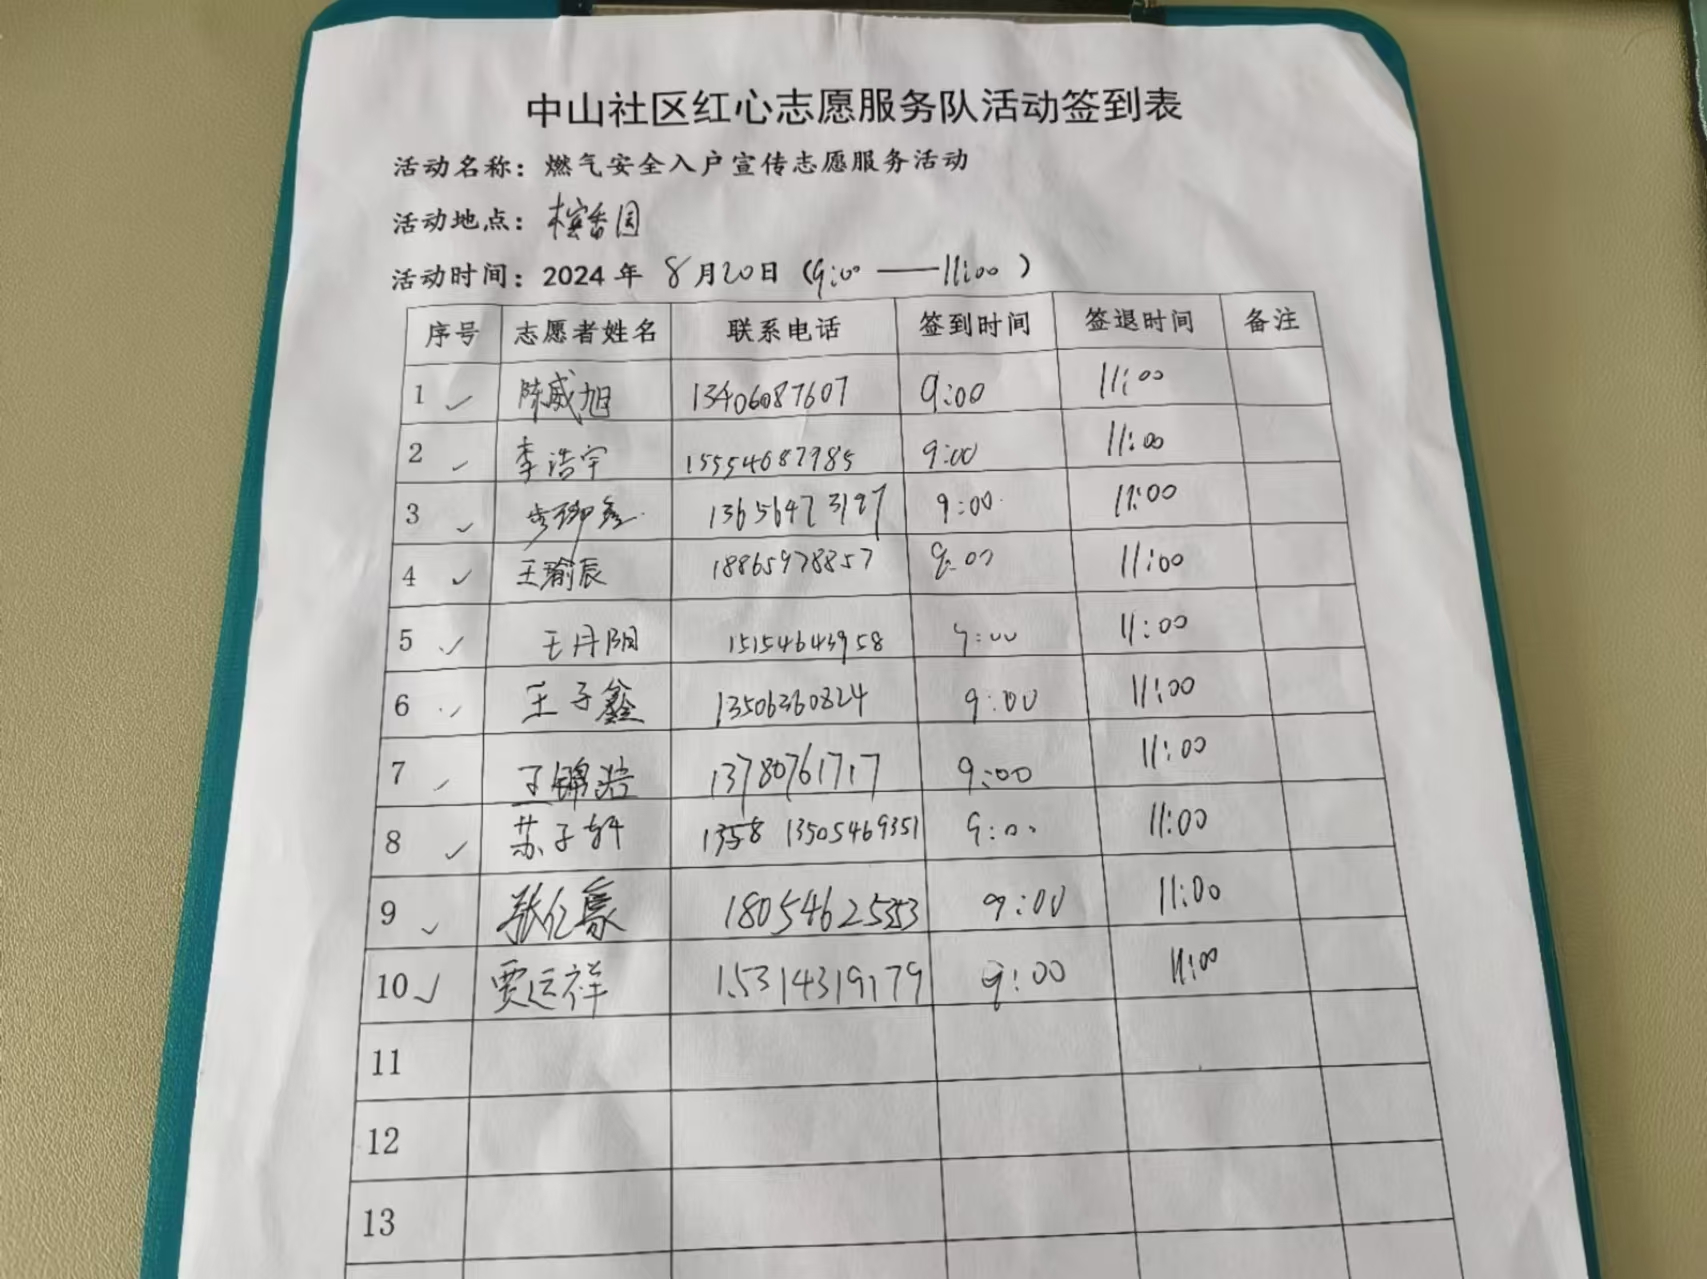 中山社区红心志愿服务队活动签到表
活动名称：燃气安全入户宣传志愿服务活动
活动地点：槟香园
活动时间：2024年 8月20日（9:00——11:00）
序号 志愿者姓名 联系电话 签到时间 签退时间 备注
1 ✓ 陈威旭 13406087607 9:00 11:00
2 ✓ 李浩宇 15554687985 9:00 11:00
3 ✓ 13656473197 9:00 11:00
4 ✓ 王瑜辰 18865978857 9:00 11:00
5 ✓ 王丹阳 15154643958 9:00 11:00
6 ✓ 王子鑫 13506360824 9:00 11:00
7 ✓ 王锦浩 13780761717 9:00 11:00
8 ✓ 苏子轩 1358 13505469351 9:00 11:00
9 ✓ 张亿豪 18054625353 9:00 11:00
10 ✓ 贾运祥 15314319179 9:00 11:00
11
12
13